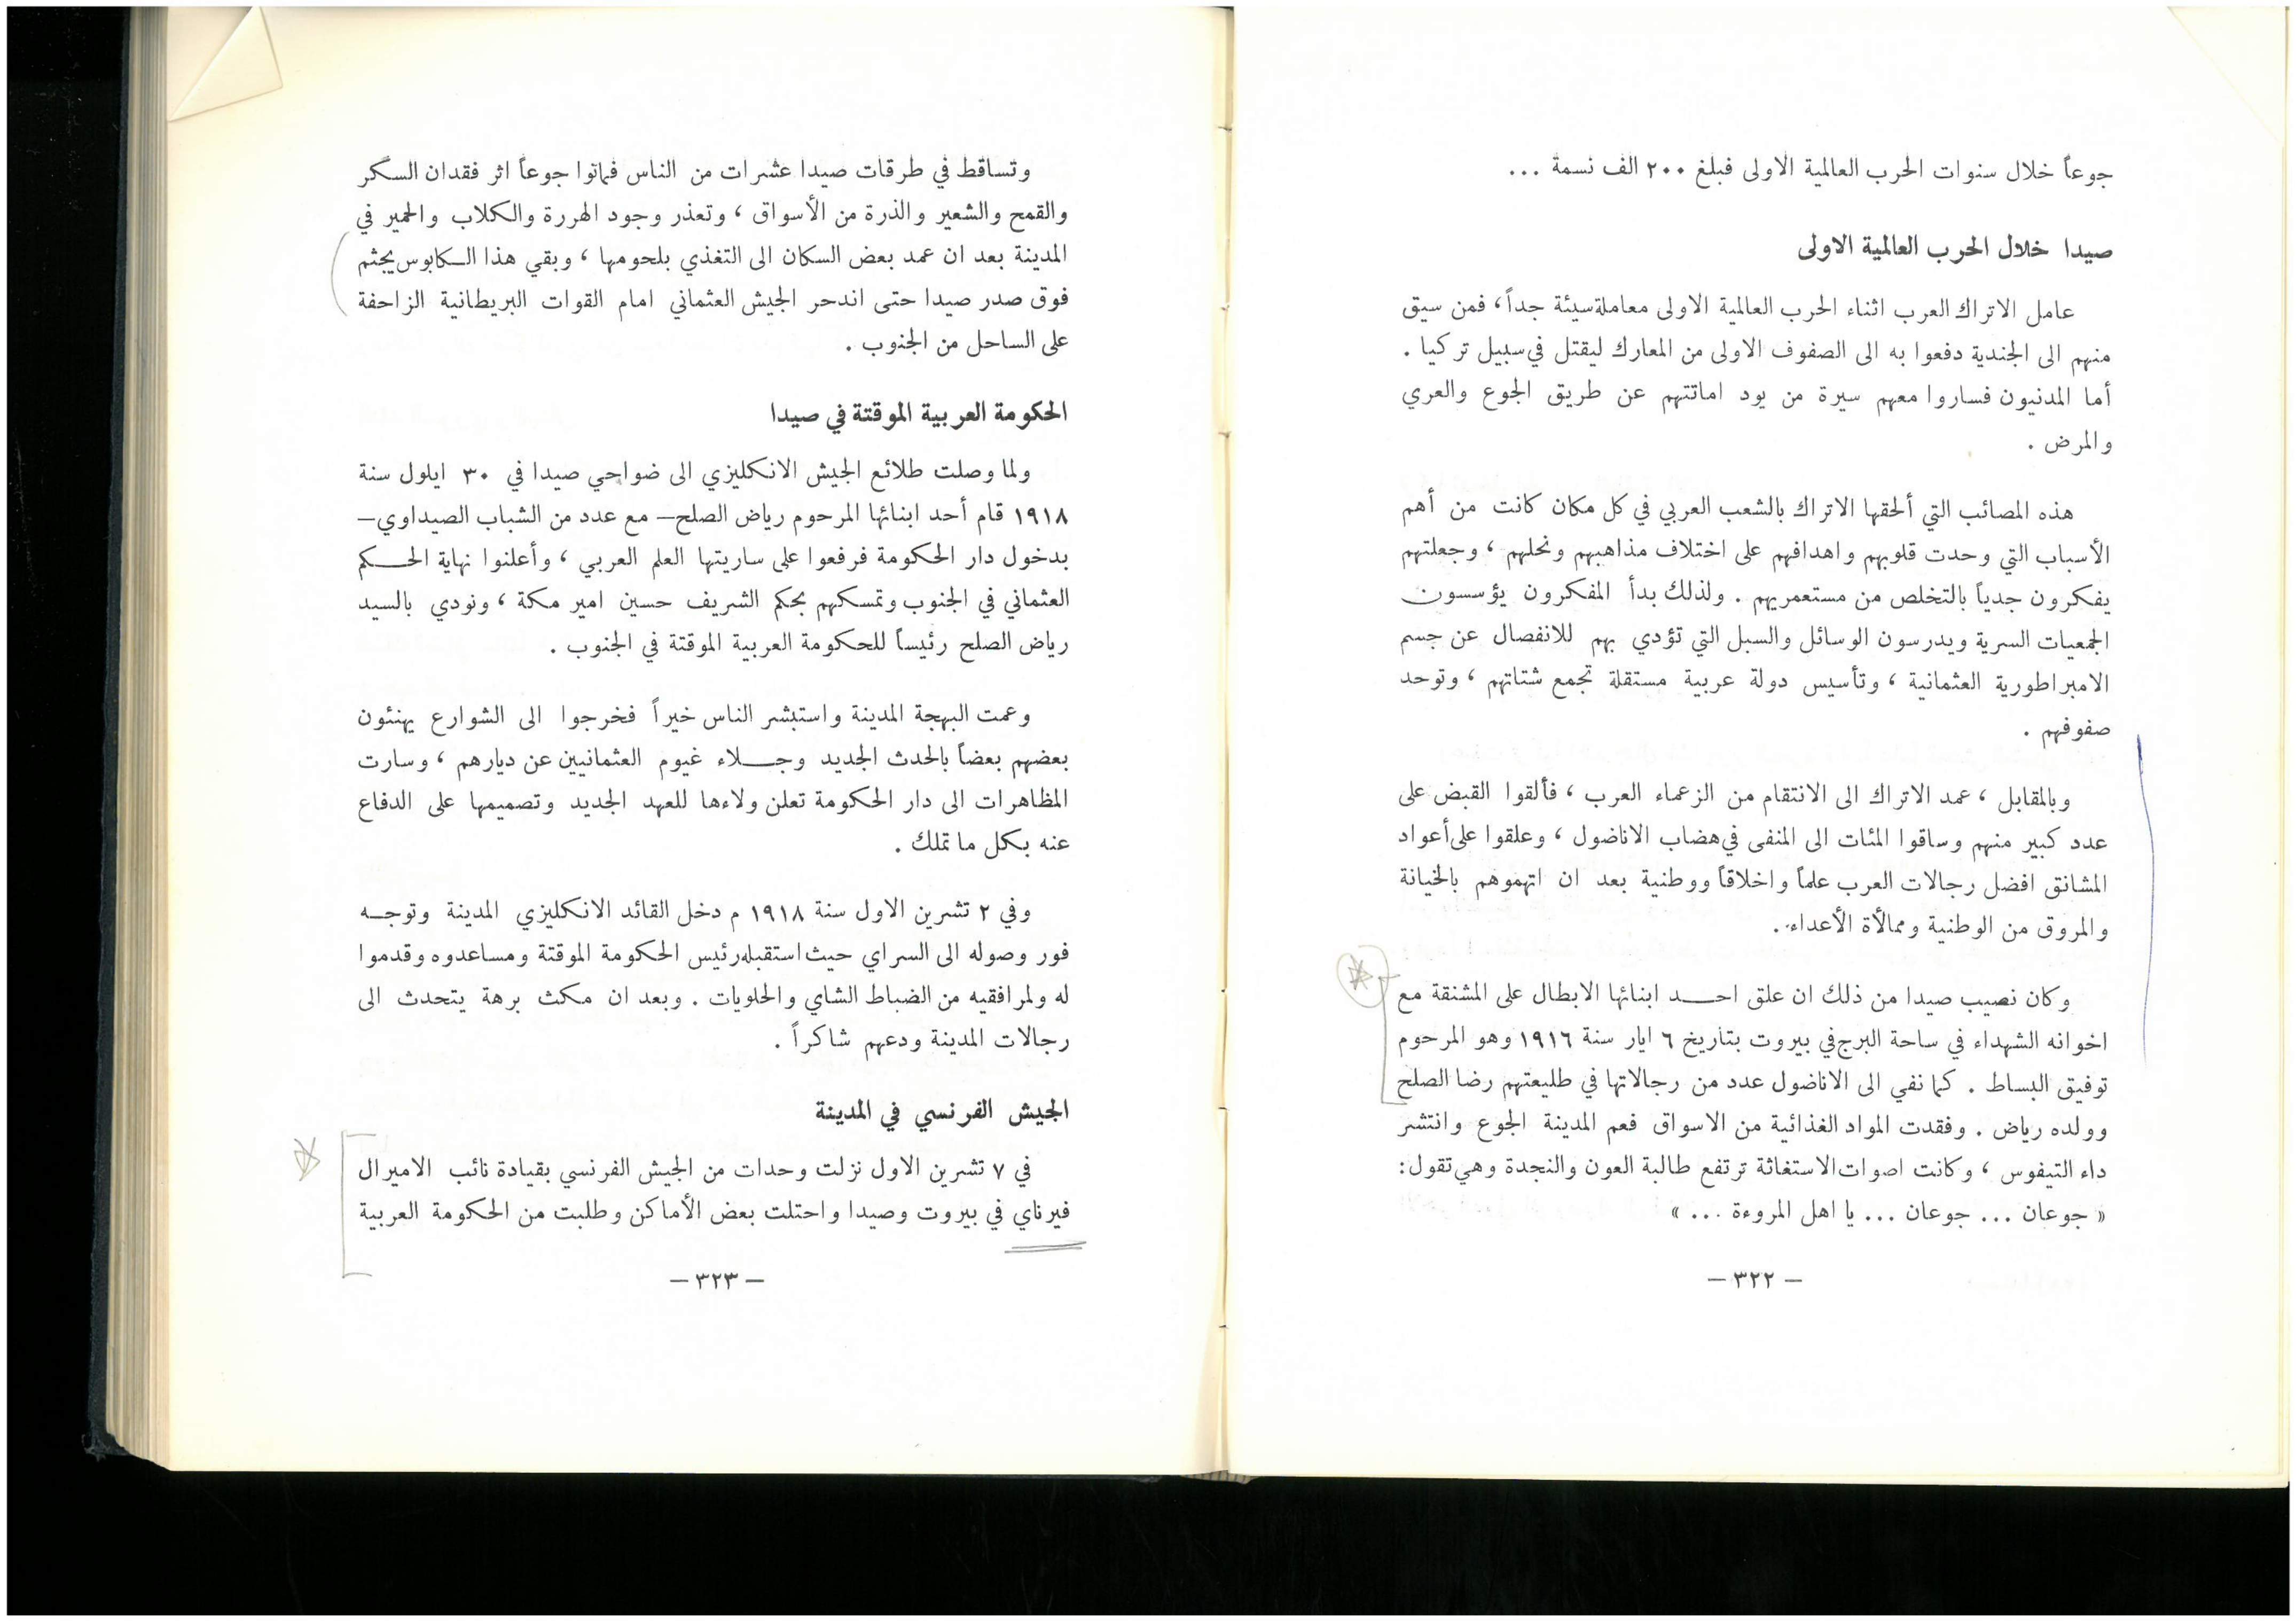 جوعاً خلال سنوات الحرب العالمية الاولى فبلغ ٢٠٠ الف نسمة ...
صيدا خلال الحرب العالمية الاولى
عامل الاتراك العرب اثناء الحرب العالمية الاولى معاملة سيئة جداً ، فمن سيق
منهم الى الجندية دفعوا به الى الصفوف الاولى من المعارك ليقتل في سبيل تركيا .
أما المدنيون فساروا معهم سيرة من يود اماتتهم عن طريق الجوع والعري
والمرض .
هذه المصائب التي ألحقها الاتراك بالشعب العربي في كل مكان كانت من أهم
الأسباب التي وحدت قلوبهم واهدافهم على اختلاف مذاهبهم ونحلهم ، وجعلتهم
يفكرون جدياً بالتخلص من مستعمريهم . ولذلك بدأ المفكرون يؤسسون
الجمعيات السرية ويدرسون الوسائل والسبل التي تؤدي بهم للانفصال عن جسم
الامبراطورية العثمانية ، وتأسيس دولة عربية مستقلة تجمع شتاتهم ، وتوحد
صفوفهم .
وبالمقابل ، عمد الاتراك الى الانتقام من الزعماء العرب ، فألقوا القبض على
عدد كبير منهم وساقوا المئات الى المنفى في هضاب الاناضول ، وعلقوا على أعواد
المشانق افضل رجالات العرب علماً واخلاقاً ووطنية بعد ان اتهموهم بالخيانة
والمروق من الوطنية وممالأة الأعداء .
وكان نصيب صيدا من ذلك ان علق احد ابنائها الابطال على المشنقة مع
اخوانه الشهداء في ساحة البرج في بيروت بتاريخ ٦ ايار سنة ١٩١٦ وهو المرحوم
توفيق البساط . كما نفي الى الاناضول عدد من رجالاتها في طليعتهم رضا الصلح
وولده رياض . وفقدت المواد الغذائية من الاسواق فعم المدينة الجوع وانتشر
داء التيفوس ، وكانت اصوات الاستغاثة ترتفع طالبة العون والنجدة وهي تقول :
« جوعان ... جوعان ... يا اهل المروءة ... »
— ٣٢٢ —
وتساقط في طرقات صيدا عشرات من الناس فماتوا جوعاً اثر فقدان السكر
والقمح والشعير والذرة من الأسواق ، وتعذر وجود الهررة والكلاب والحمير في
المدينة بعد ان عمد بعض السكان الى التغذي بلحومها ، وبقي هذا الكابوس يجثم
فوق صدر صيدا حتى اندحر الجيش العثماني امام القوات البريطانية الزاحفة
على الساحل من الجنوب .
الحكومة العربية الموقتة في صيدا
ولما وصلت طلائع الجيش الانكليزي الى ضواحي صيدا في ٣٠ ايلول سنة
١٩١٨ قام أحد ابنائها المرحوم رياض الصلح — مع عدد من الشباب الصيداوي —
بدخول دار الحكومة فرفعوا على ساريتها العلم العربي ، وأعلنوا نهاية الحكم
العثماني في الجنوب وتمسكهم بحكم الشريف حسين امير مكة ، ونودي بالسيد
رياض الصلح رئيساً للحكومة العربية الموقتة في الجنوب .
وعمت البهجة المدينة واستبشر الناس خيراً فخرجوا الى الشوارع يهنئون
بعضهم بعضاً بالحدث الجديد وجلاء غيوم العثمانيين عن ديارهم ، وسارت
المظاهرات الى دار الحكومة تعلن ولاءها للعهد الجديد وتصميمها على الدفاع
عنه بكل ما تملك .
وفي ٢ تشرين الاول سنة ١٩١٨ م دخل القائد الانكليزي المدينة وتوجه
فور وصوله الى السراي حيث استقبله رئيس الحكومة الموقتة ومساعدوه وقدموا
له ولمرافقيه من الضباط الشاي والحلويات . وبعد ان مكث برهة يتحدث الى
رجالات المدينة ودعهم شاكراً .
الجيش الفرنسي في المدينة
في ٧ تشرين الاول نزلت وحدات من الجيش الفرنسي بقيادة نائب الاميرال
فيرناي في بيروت وصيدا واحتلت بعض الأماكن وطلبت من الحكومة العربية
— ٣٢٣ —